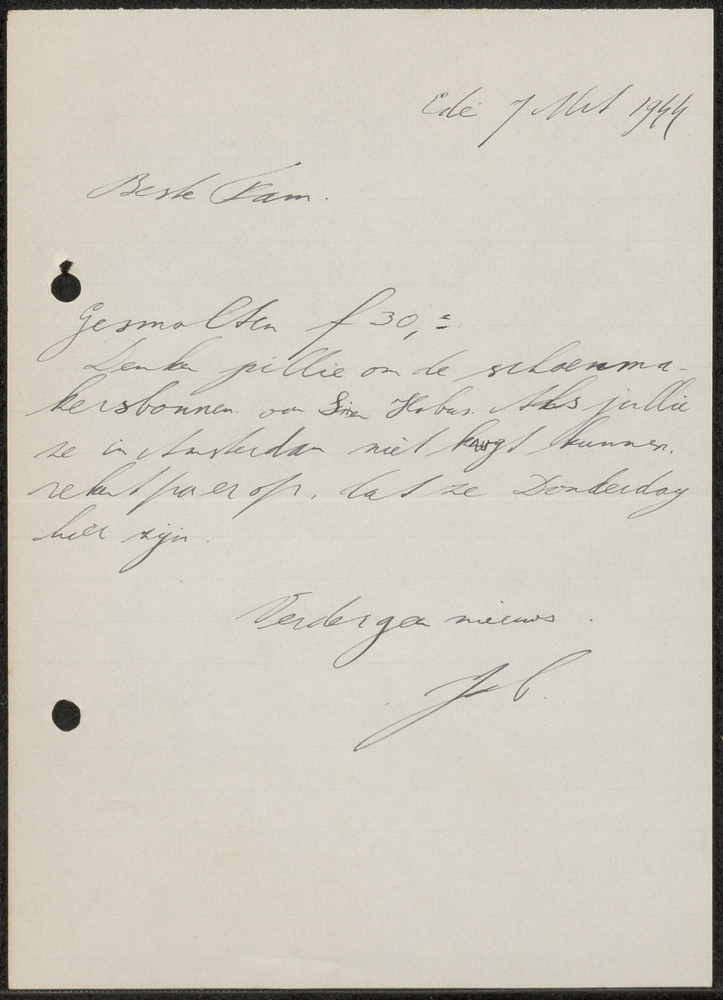 Ede 7 Mrt 1944
Beste Kam.
Gesmolten f 30,=
Denken jullie om de schoenma-
kersbonnen van Hobus. Als jullie
ze in Amsterdam niet kwijt kunnen.
rekent Jo er op, dat ze Donderdag
hier zijn.
Verder geen nieuws.